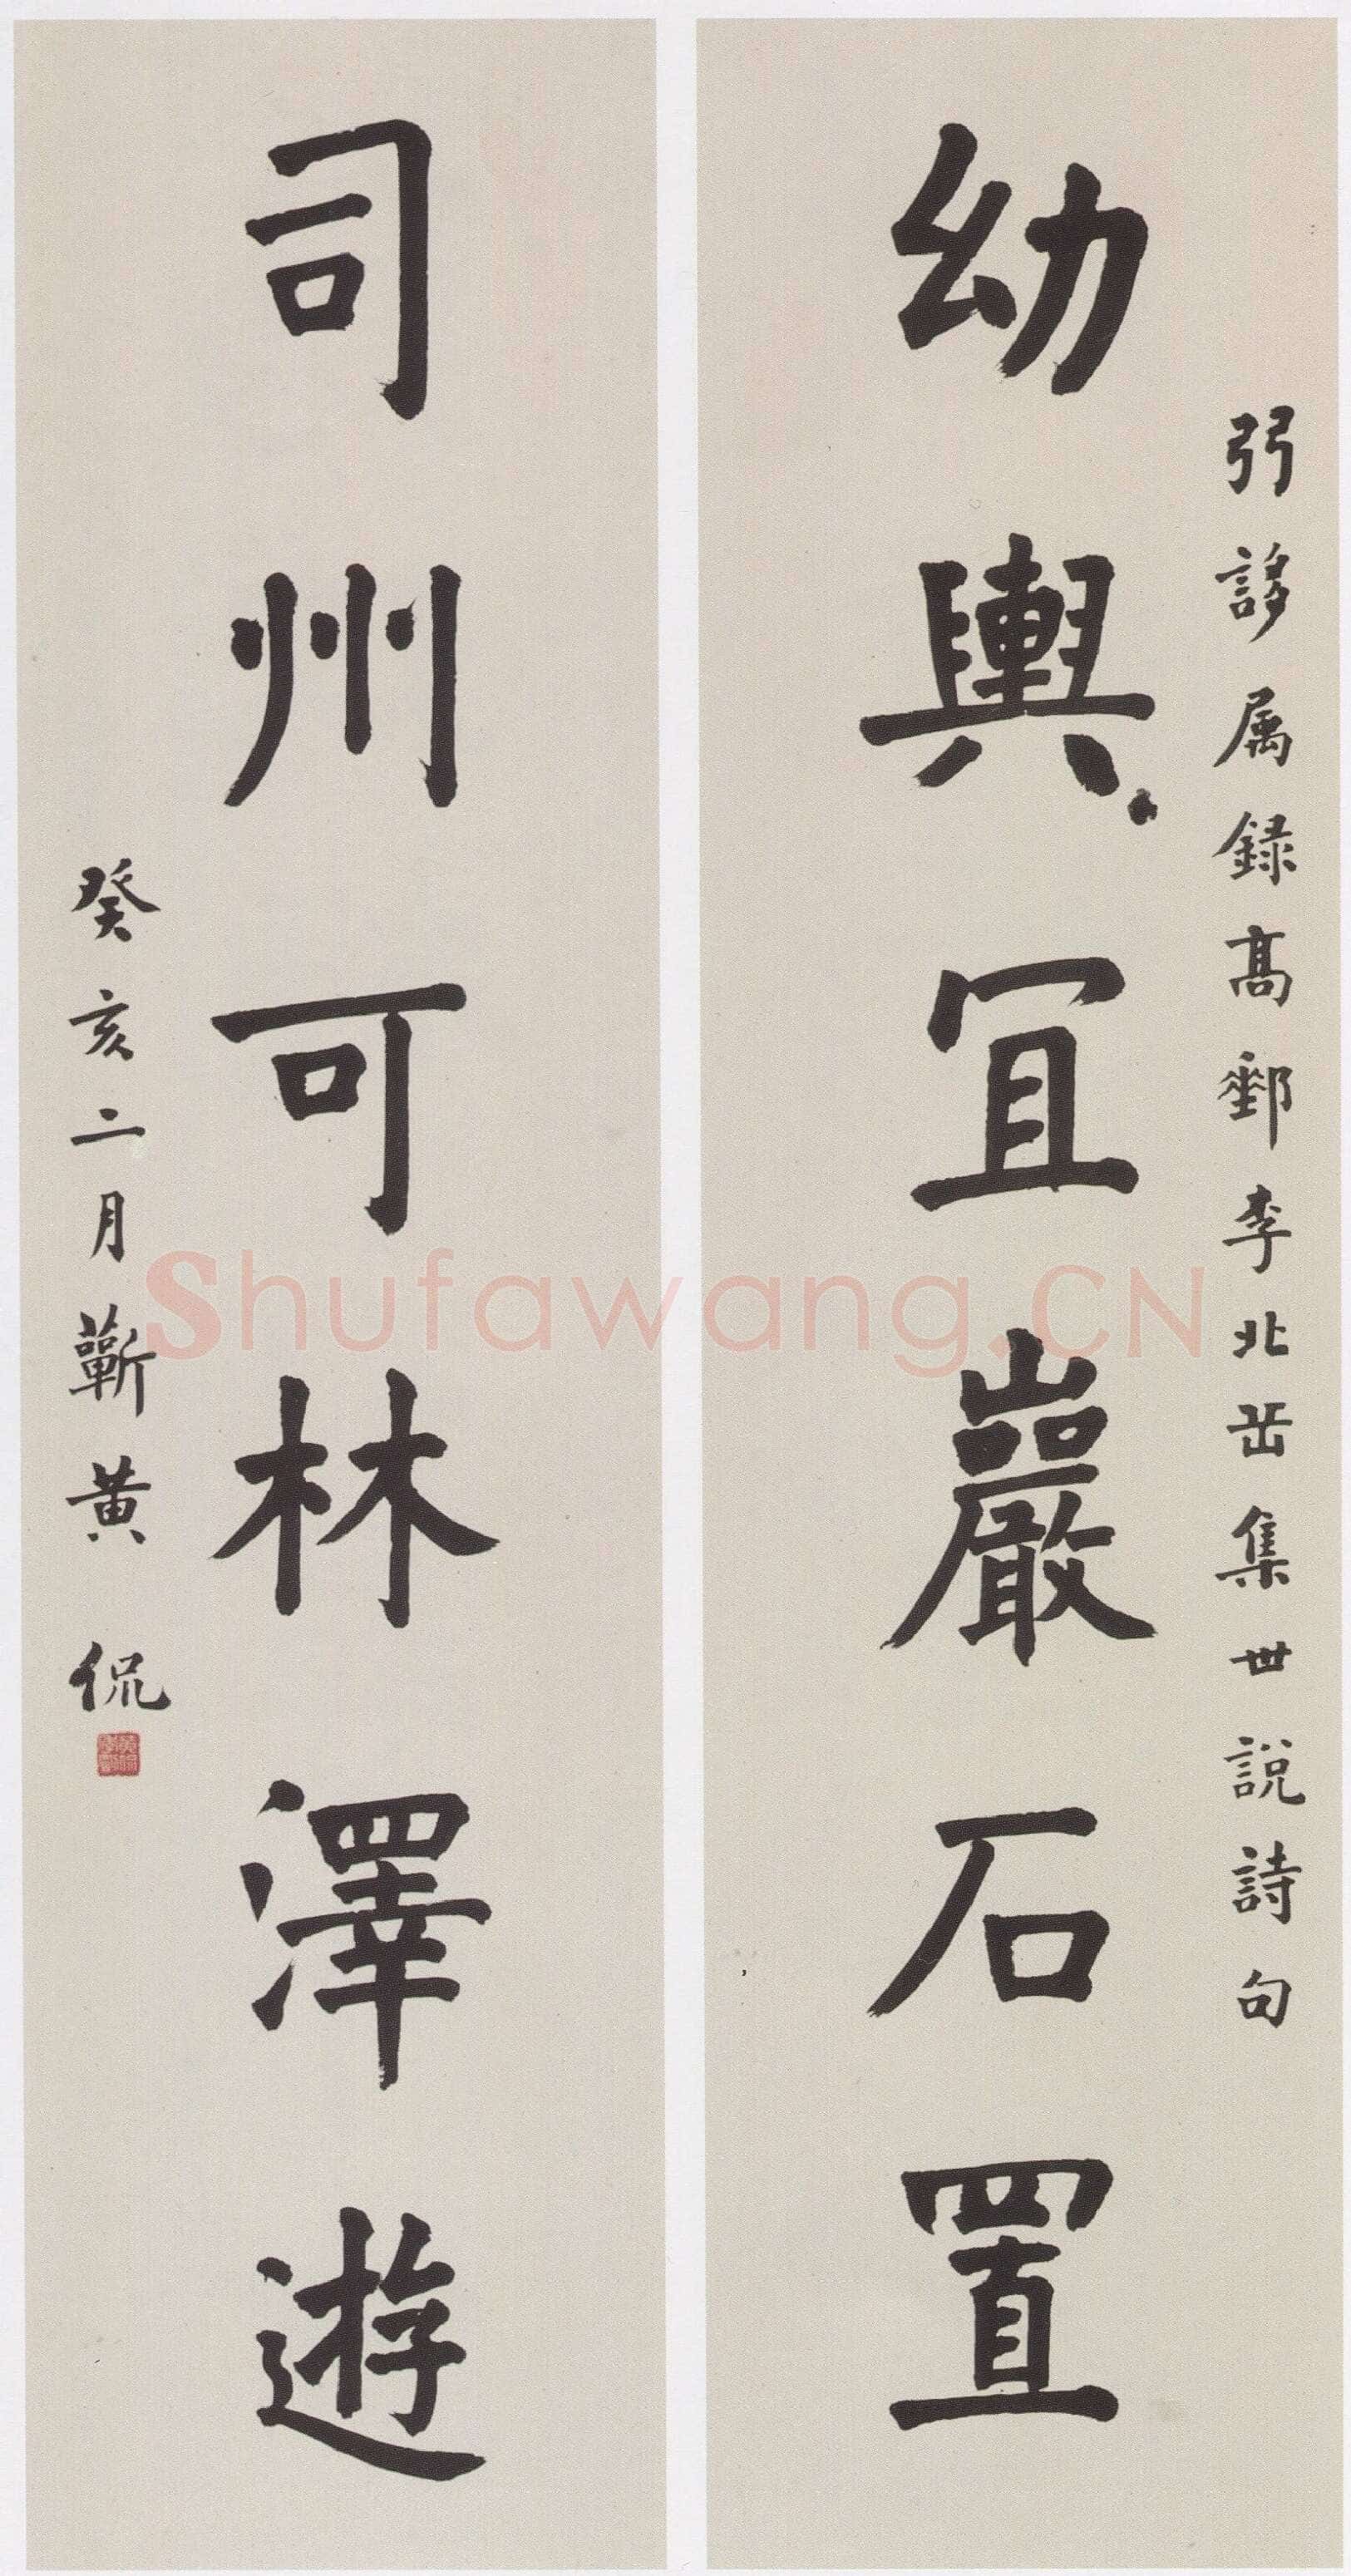 弜誃属録高郵李北岳集世說詩句
幼輿宜巖石置
司州可林澤遊
癸亥二月蘄黃侃
Shufawang.CN